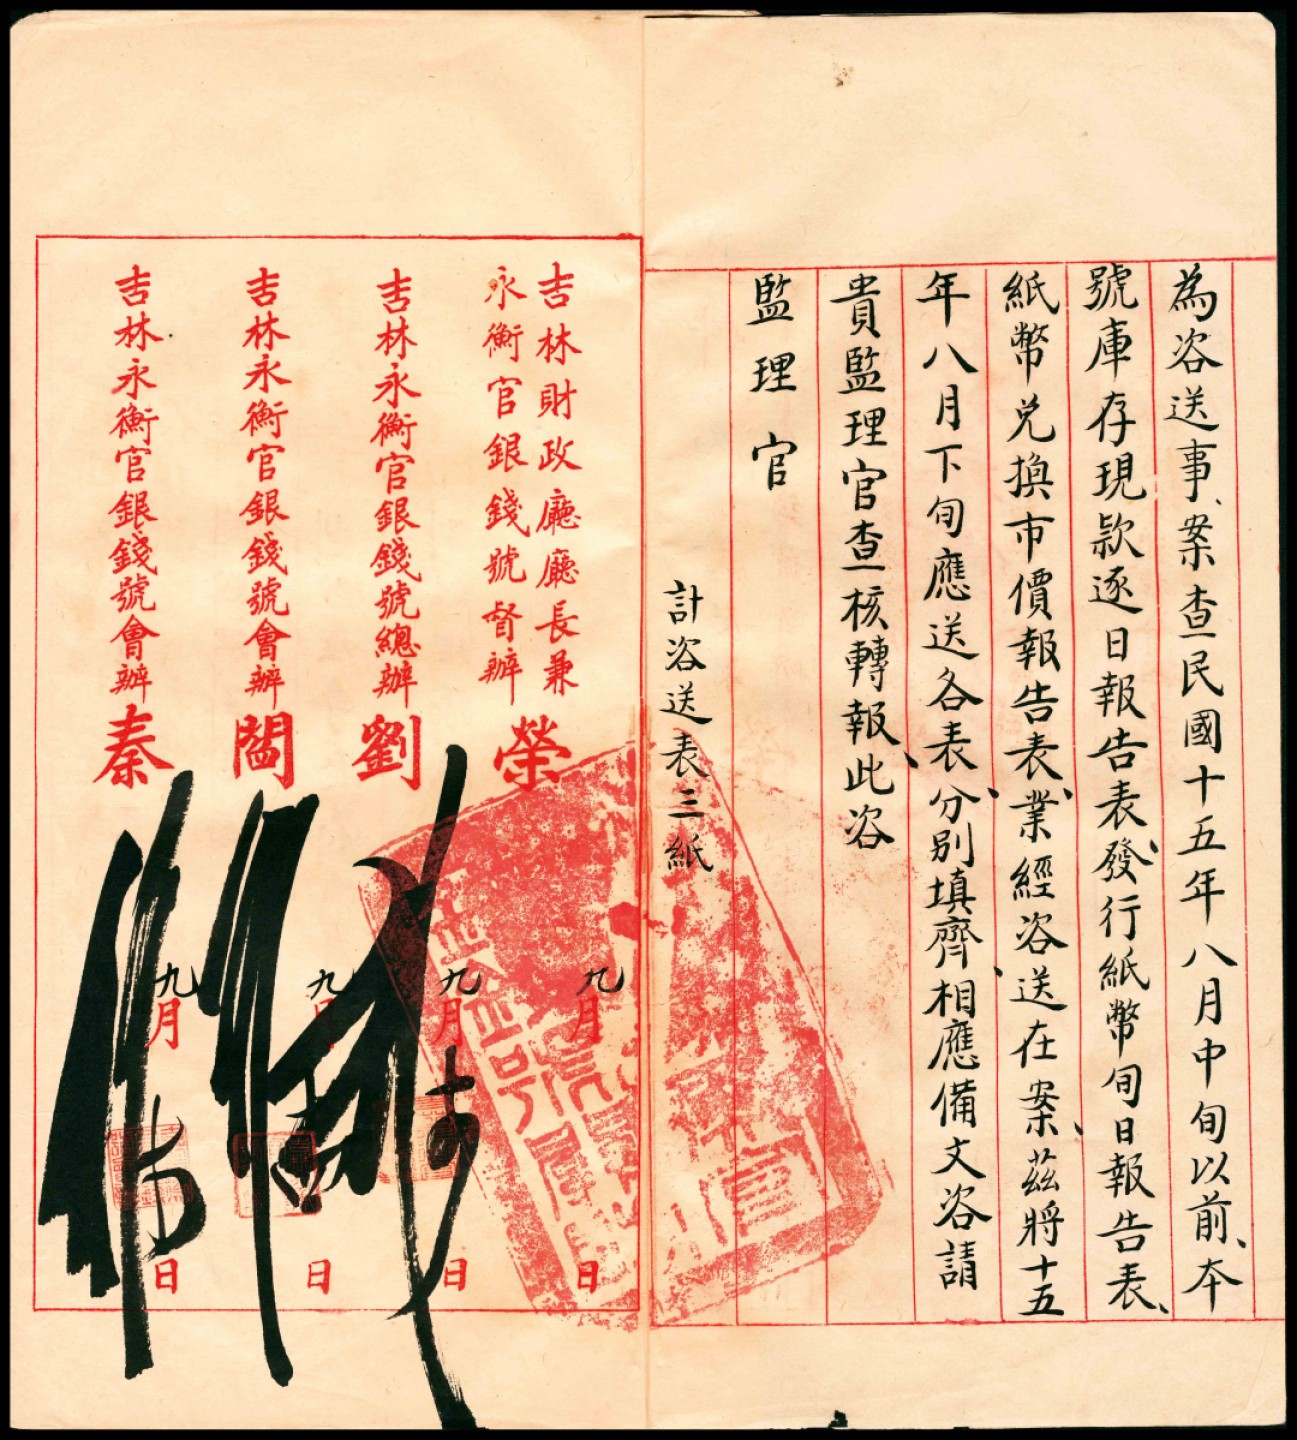 為咨送事、案查民國十五年八月中旬以前、本
號庫存現款逐日報告表、發行紙幣旬日報告表、
紙幣兌換市價報告表、業經咨送在案、茲將十五
年八月下旬應送各表、分別填齊、相應備文咨請
貴監理官查核轉報、此咨
監理官
計咨送表三紙
吉林財政廳廳長兼
永衡官銀錢號督辦
榮
九月
日
吉林永衡官銀錢號總辦劉
九月
日
吉林永衡官銀錢號會辦閻
九月
日
吉林永衡官銀錢號會辦秦
九月
日